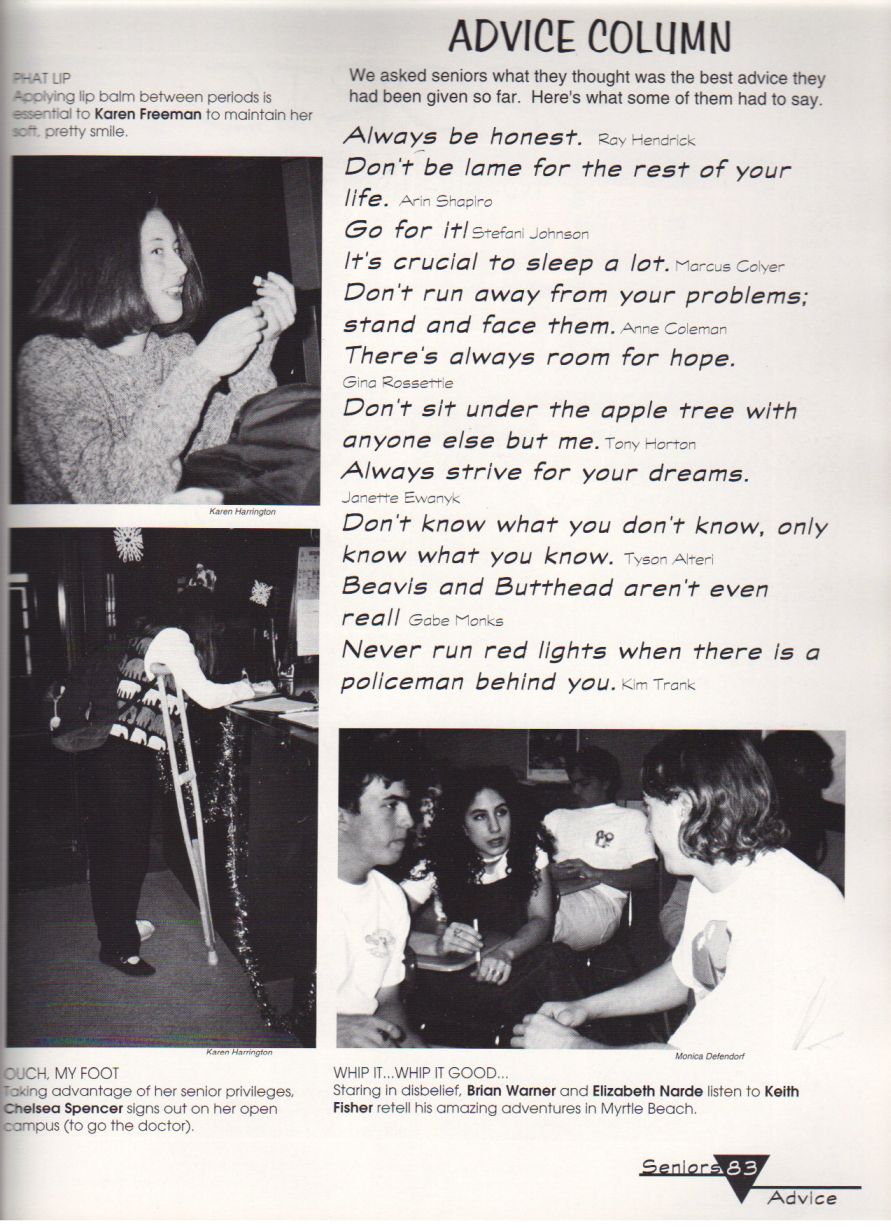 ADVICE COLUMN
PHAT LIP
Applying lip balm between periods is
essential to Karen Freeman to maintain her
soft, pretty smile.
Karen Harrington
We asked seniors what they thought was the best advice they
had been given so far. Here's what some of them had to say.
Always be honest. Ray Hendrick
Don't be lame for the rest of your
life. Arin Shapiro
Go for it! Stefani Johnson
It's crucial to sleep a lot. Marcus Colyer
Don't run away from your problems;
stand and face them. Anne Coleman
There's always room for hope.
Gina Rossettie
Don't sit under the apple tree with
anyone else but me. Tony Horton
Always strive for your dreams.
Janette Ewanyk
Don't know what you don't know, only
know what you know. Tyson Alteri
Beavis and Butthead aren't even
real! Gabe Monks
Never run red lights when there is a
policeman behind you. Kim Trank
Karen Harrington
OUCH, MY FOOT
Taking advantage of her senior privileges,
Chelsea Spencer signs out on her open
campus (to go the doctor).
Monica Defendorf
WHIP IT...WHIP IT GOOD...
Staring in disbelief, Brian Warner and Elizabeth Narde listen to Keith
Fisher retell his amazing adventures in Myrtle Beach.
Seniors 83
Advice